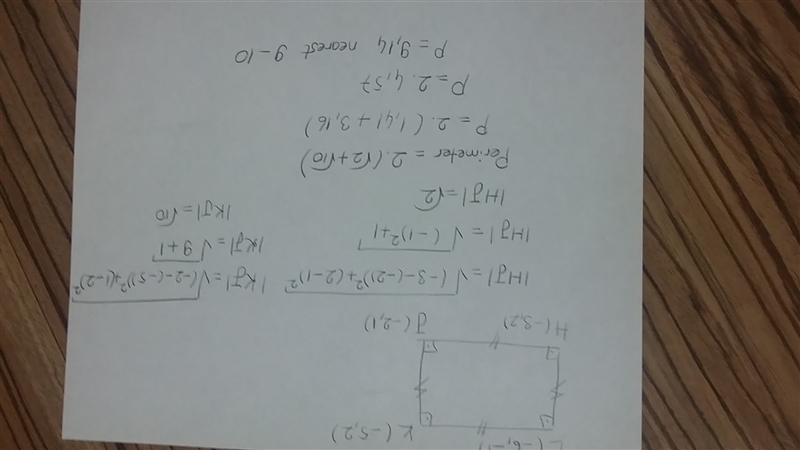 K(-5,2)
H(-3,2) J(-2,1)
|HJ| = √(-3-(-2))²+(2-1)² |KJ| = √(-2-(-5))²+(1-2)²
|HJ| = √(-1)²+1 |KJ| = √9+1
|HJ| = √2 |KJ| = √10
Perimeter = 2.(√2+√10)
P = 2.(1,41+3,16)
P = 2.4,57
P = 9,14 nearest 9-10